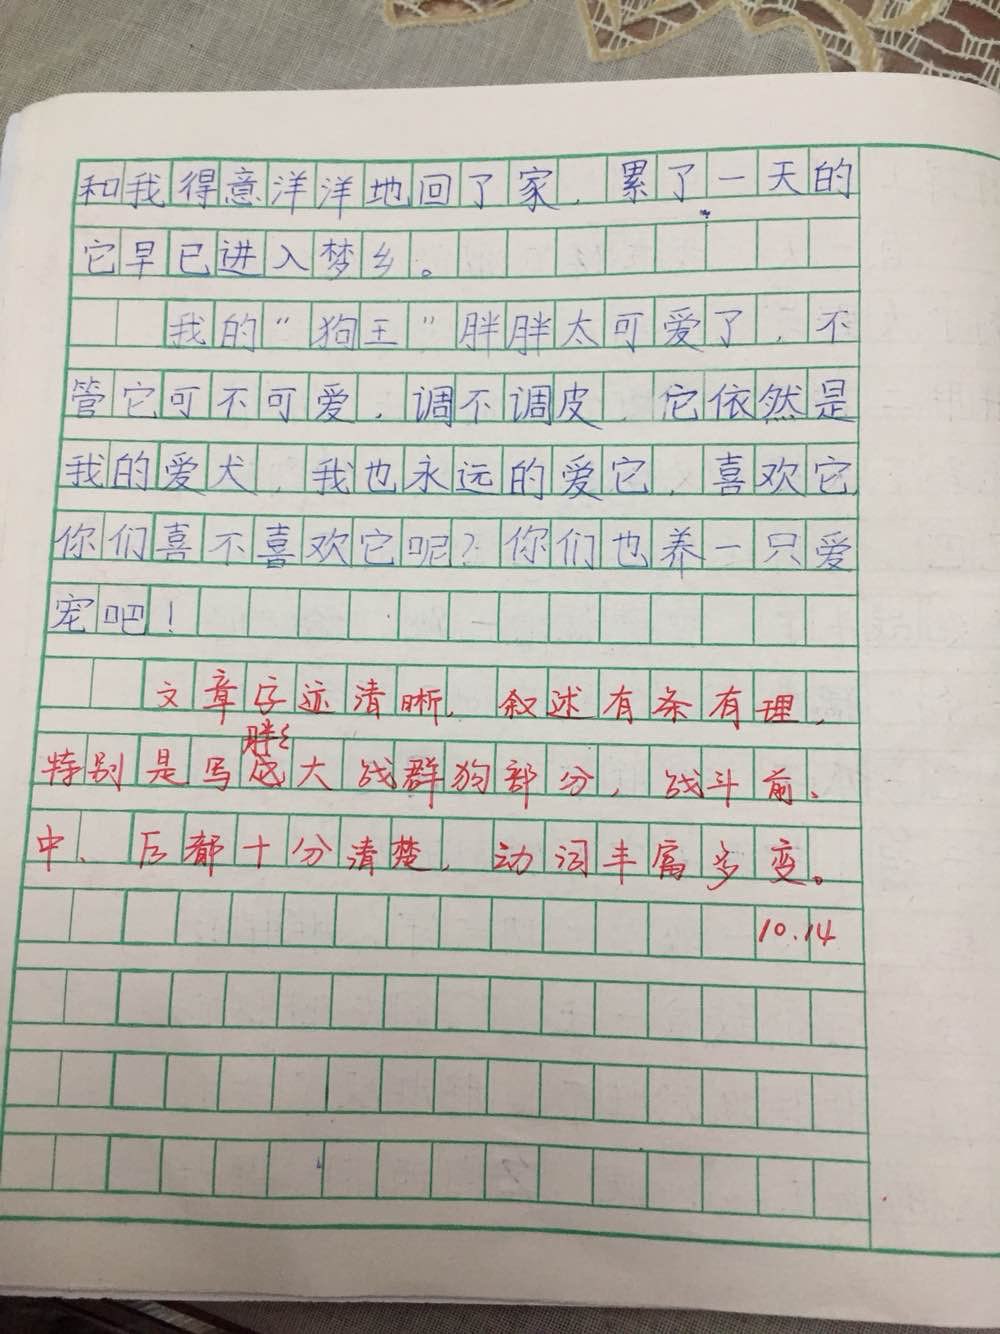 和我得意洋洋地回了家，累了一天的
它早已进入梦乡。
我的“狗王”胖胖太可爱了，不
管它可不可爱，调不调皮，它依然是
我的爱犬，我也永远的爱它，喜欢它
你们喜不喜欢它呢？你们也养一只爱
宠吧！
文章字迹清晰，叙述有条有理，
胖胖
特别是写它大战群狗部分，战斗前、
中、后都十分清楚，动词丰富多变。
10.14